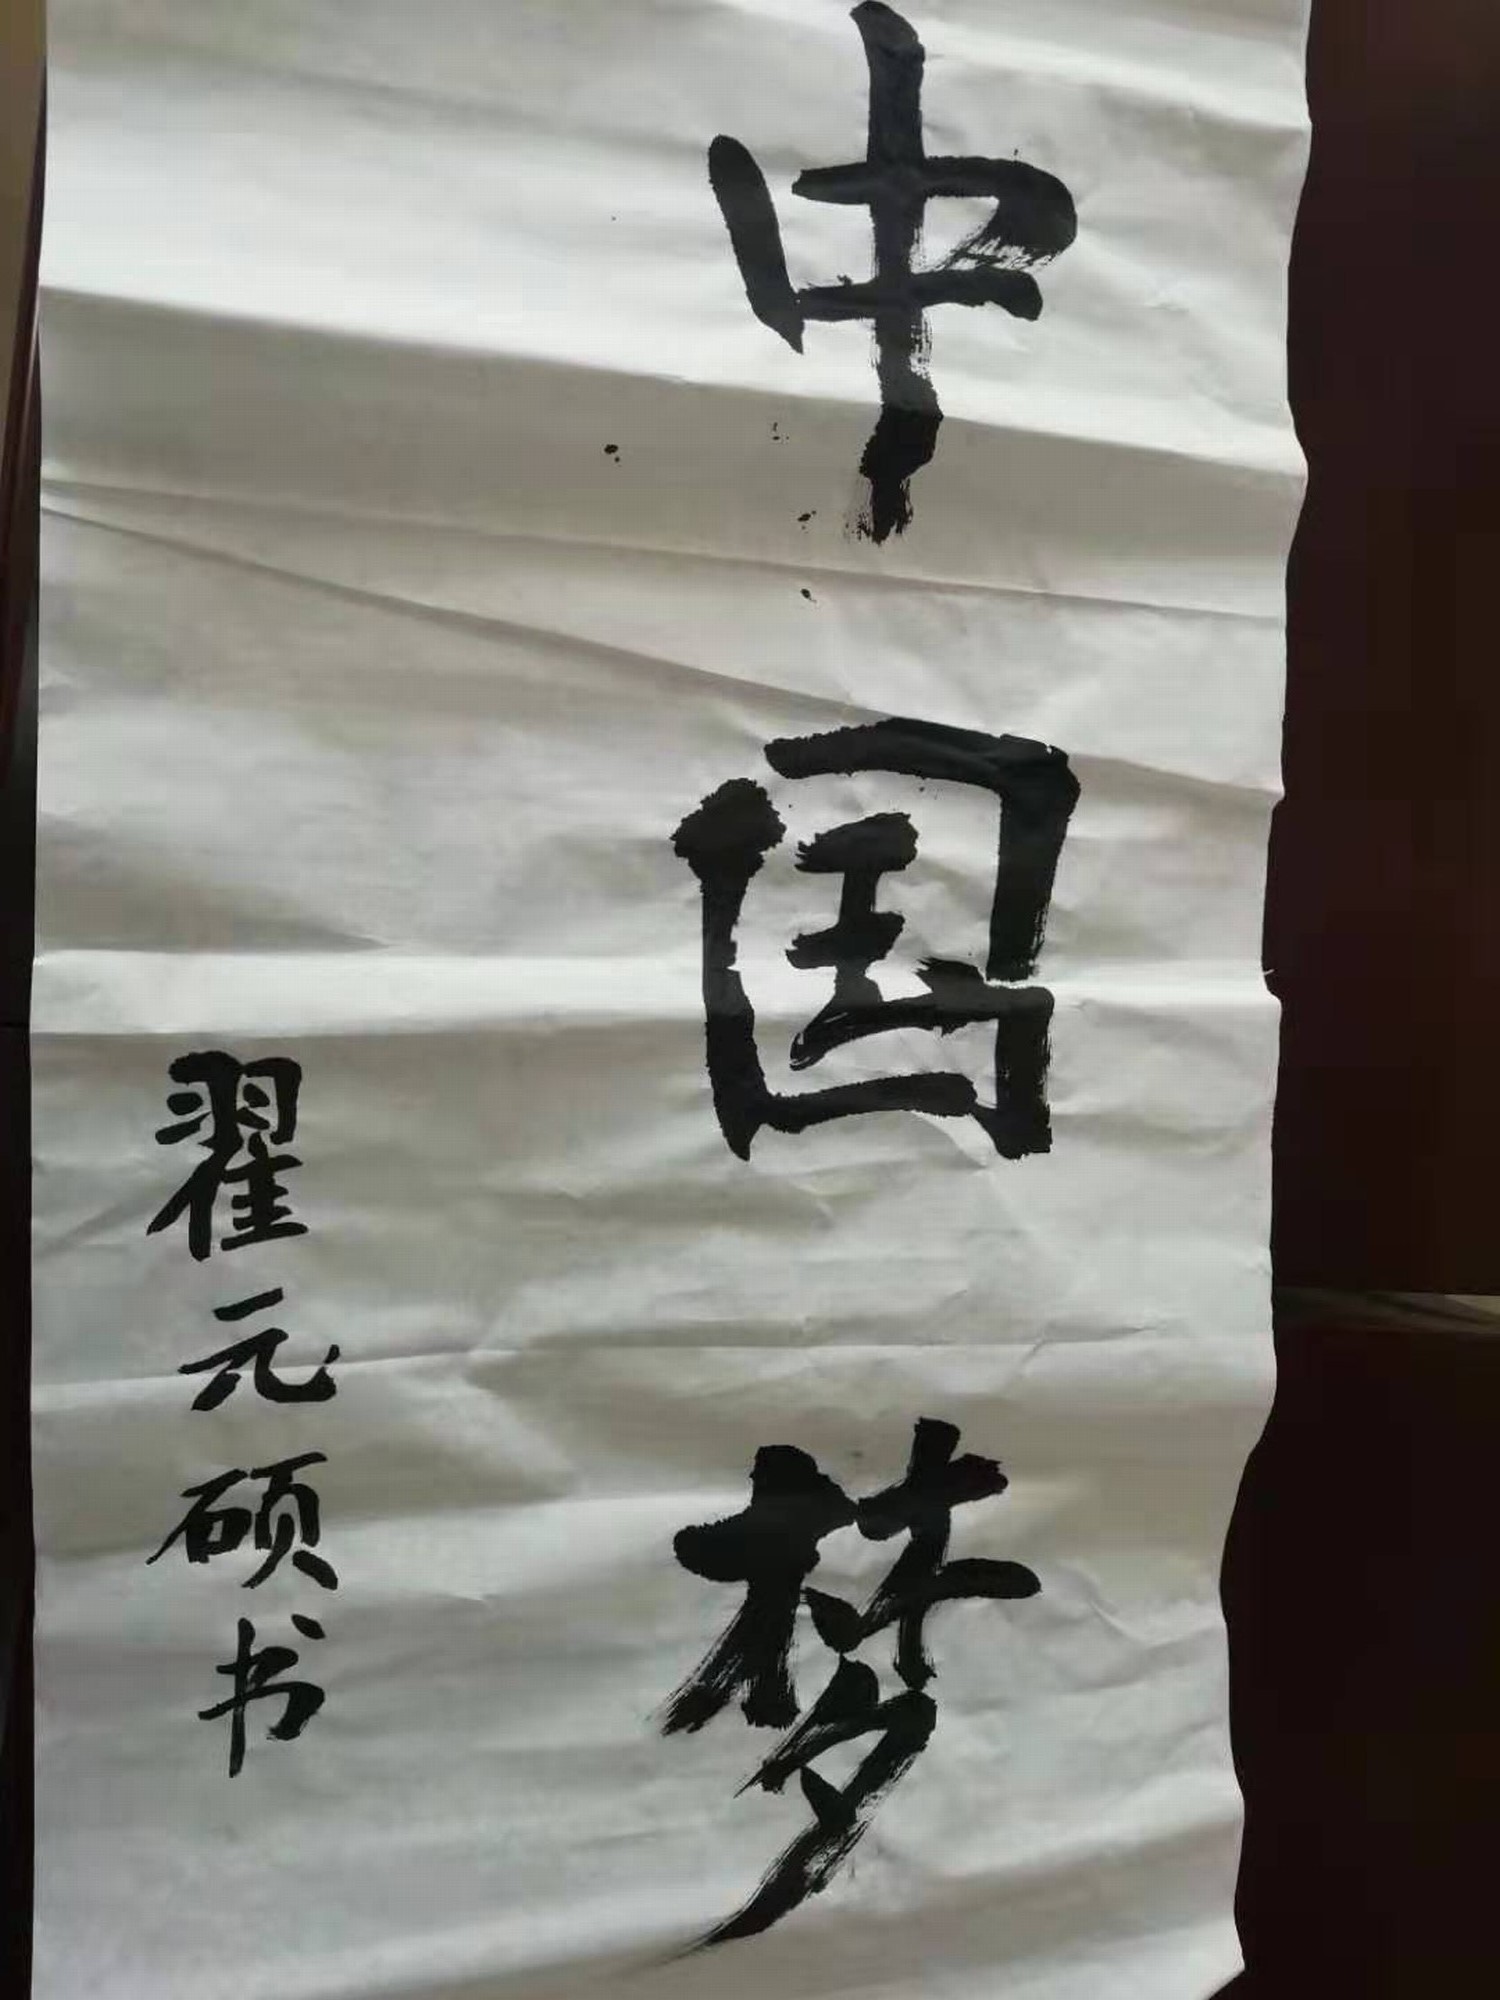 中国梦
翟元硕书